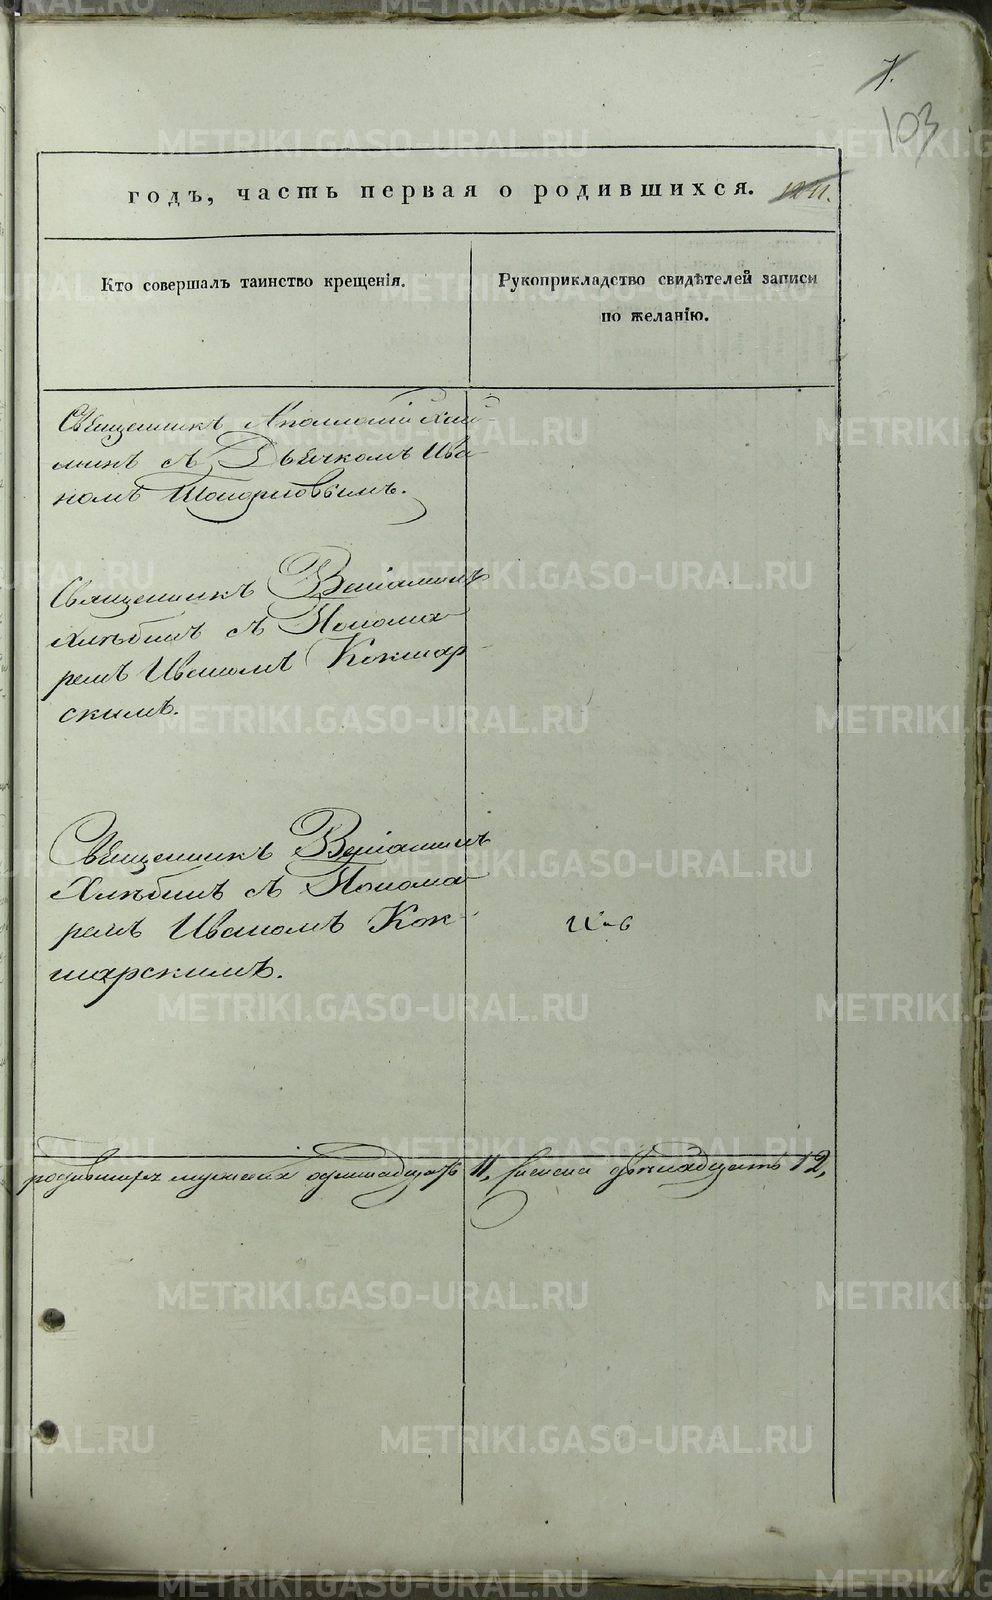 7.
103
годъ, часть первая о родившихся.
Кто совершалъ таинство крещенія.
Рукоприкладство свидѣтелей записи
по желанію.
Священникъ
съ Дьячкомъ Ива-
номъ
Священникъ Веніаминъ
Хлѣбинъ съ Понома-
ремъ Иваномъ Кокшар-
скимъ.
Священникъ Веніаминъ
Хлѣбинъ съ Понома-
ремъ Иваномъ Кок-
шарскимъ.
родившихъ мужеска одиннадцать 11, женска двенадцать 12,
METRIKI.GASO-URAL.RU